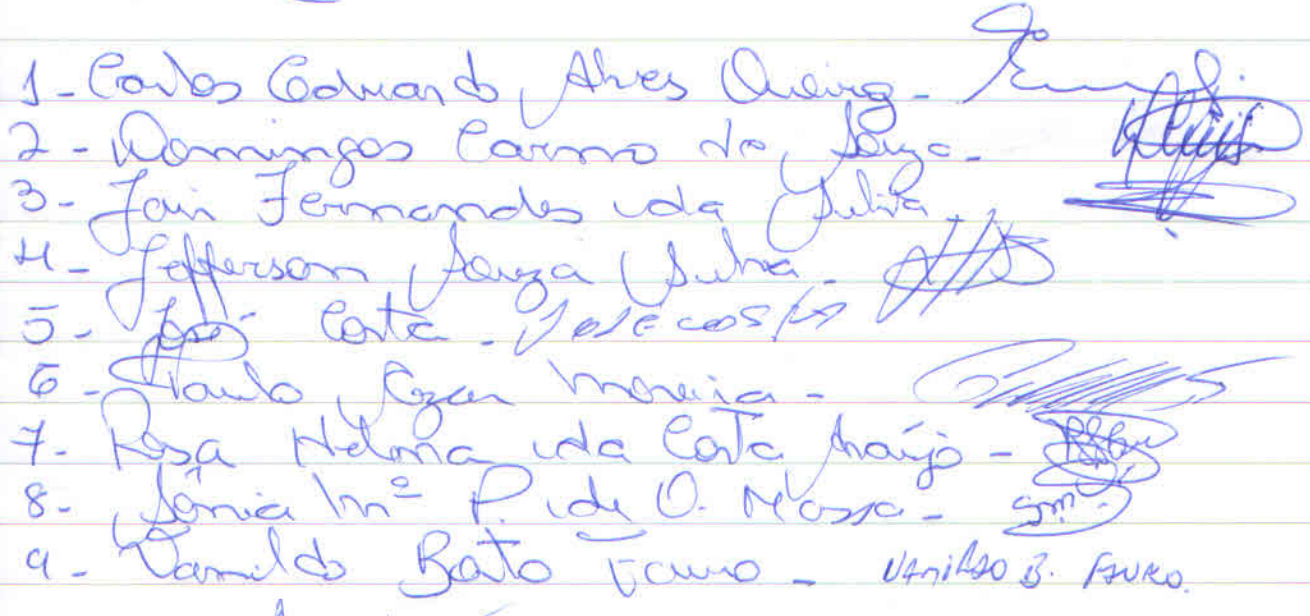 1- Carlos Eduardo Alves Queiroz -
2- Domingos Carmo de Souza -
3- Jair Fernandes da Silva -
4- Jefferson Souza Silva -
5- José Costa - JOSE COSTA
6- Paulo Cezar Moreira -
7- Rosa Helma da Costa Araújo -
8- Sônia Mª P. de O. Massa -
9- Vamildo Bento Fauro - VAMILDO B. FAURO.